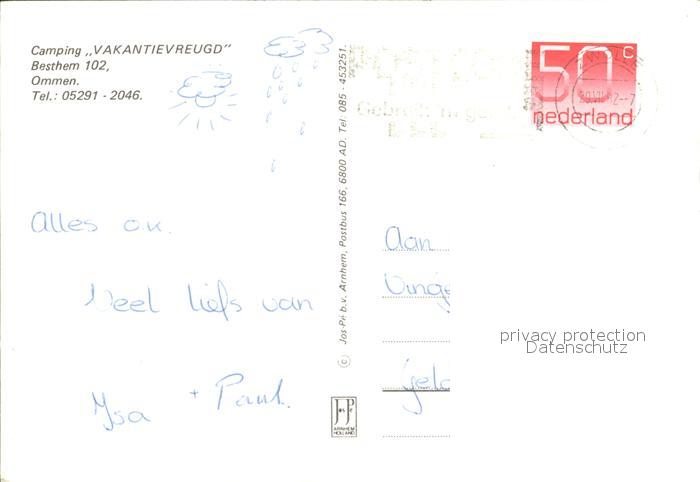 Camping „VAKANTIEVREUGD”
Besthem 102,
Ommen.
Tel.: 05291 - 2046.
Alles o.k.
Veel liefs van
+ Paul.
Jos-Pé b.v. Arnhem, Postbus 166, 6800 AD. Tel: 085 - 453251.
JosPé
ARNHEM
HOLLAND
50c
nederland
Aan
privacy protection
Datenschutz